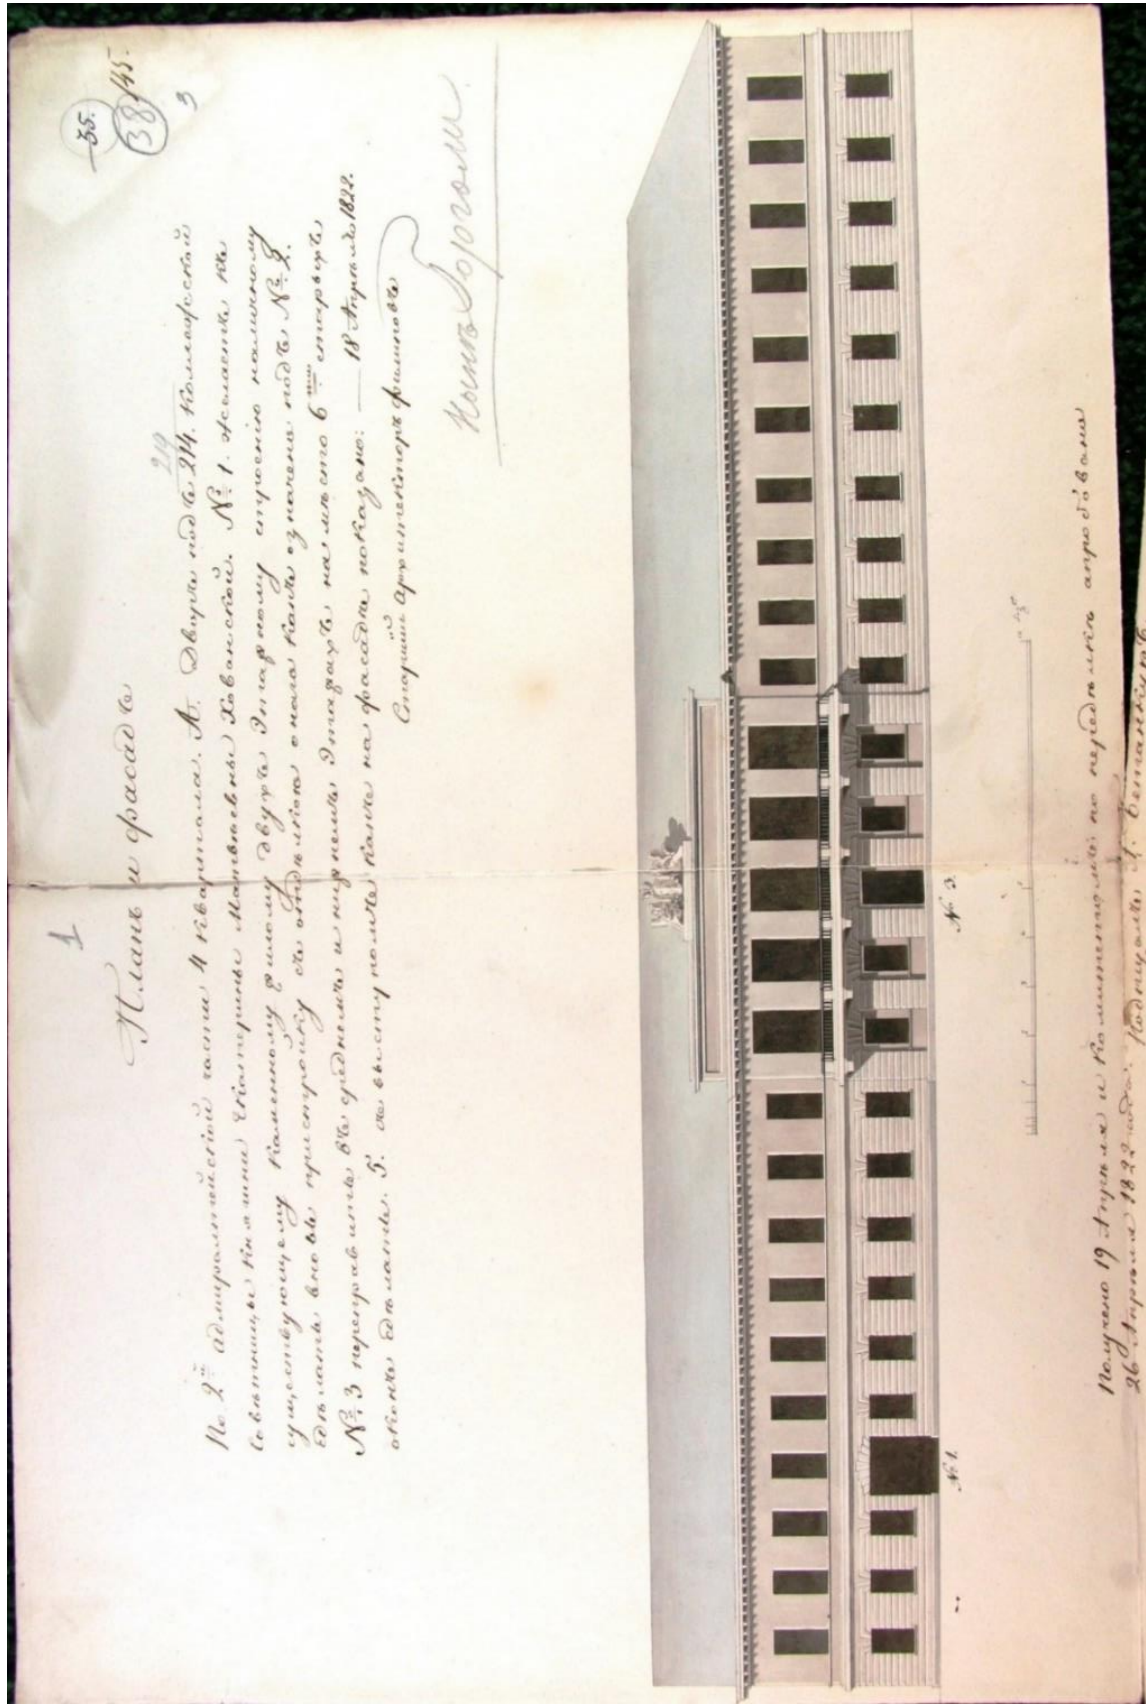 35.
38/45.
3
1
Планъ и фасадъ
219
По 2й адмиралтейской части 4 квартала. А. Дворъ подъ 214. Коллежской
Совѣтницы Княжны Екатерины Матвѣевны Хованской. № 1. желаетъ къ
существующему каменному жилому двухъ Этажному строенію каменному
сдѣлать вновь пристройку съ отдѣлкою онаго какъ означено подъ № 2.
№ 3 переправить въ среднемъ и нижнемъ Этажахъ на мѣсто 6ти старыхъ
оконъ сдѣлать 5. съ выступомъ какъ на фасадѣ показано: — 18 Апрѣля 1822.
Старшій архитекторъ филиповъ
№ 3.
№ 1.
Получено 19 Апрѣля и Комитетомъ по передѣлкѣ апробована
26 Апрѣля 1822 года. Подписалъ А. Бетанкуръ